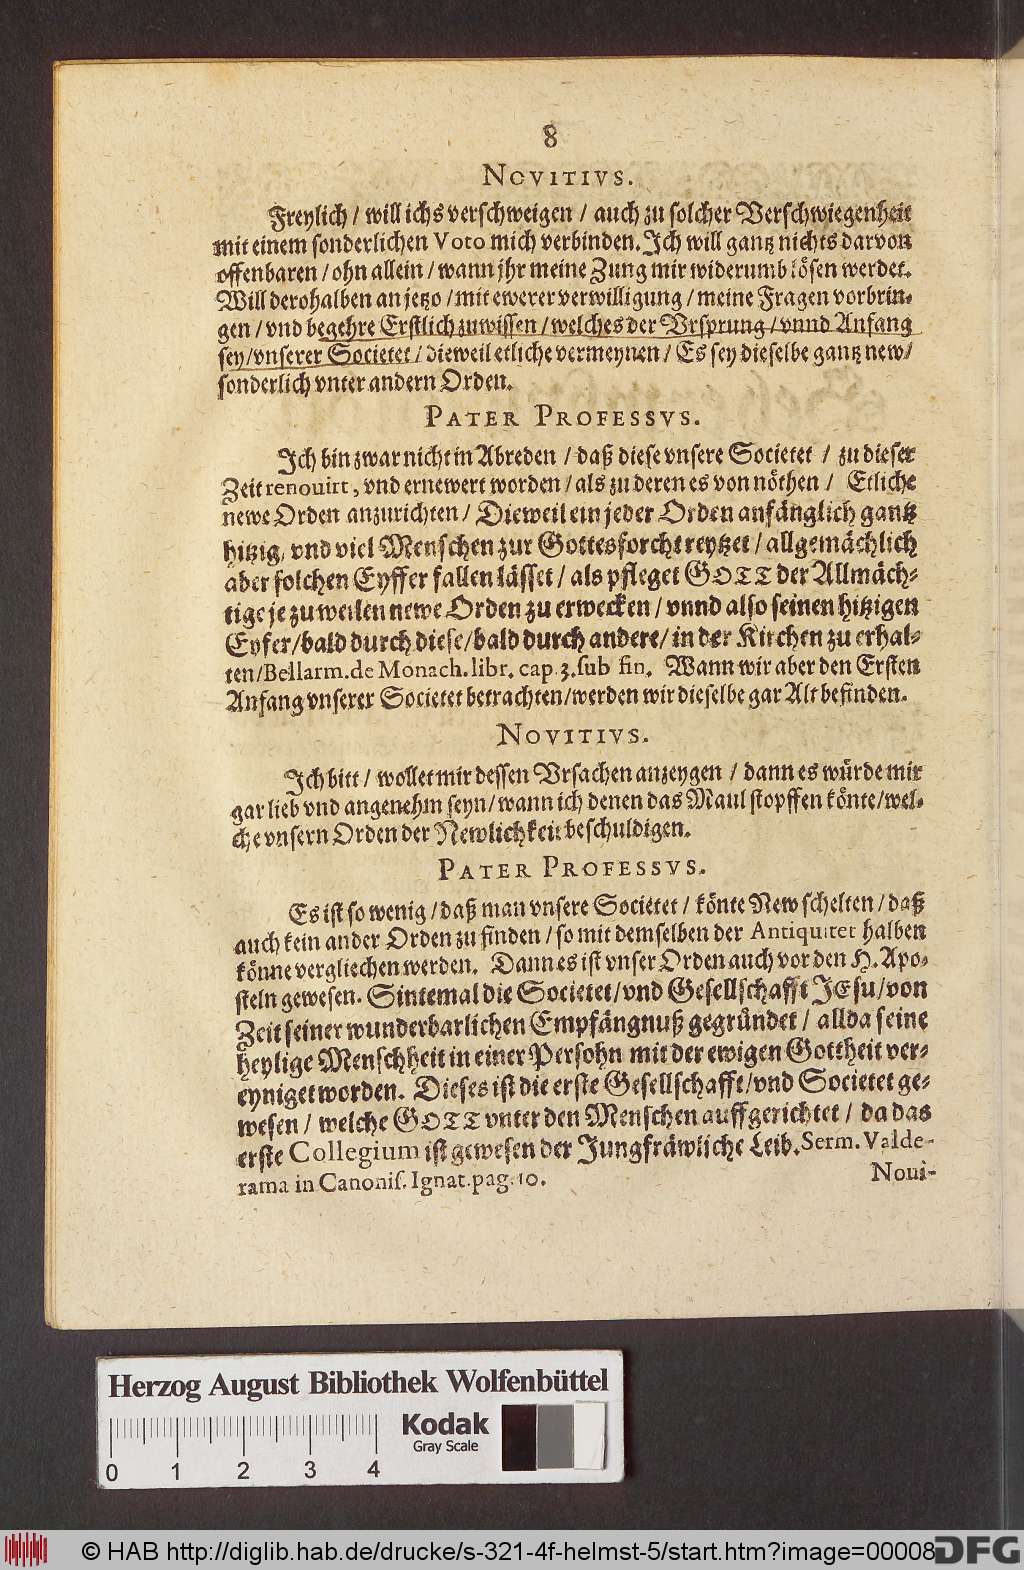 8
NOVITIVS.
Freylich / will ichs verschweigen / auch zu solcher Verschwiegenheit
mit einem sonderlichen Voto mich verbinden. Ich will gantz nichts darvon
offenbaren / ohn allein / wann jhr meine Zung mir widerumb lösen werdet.
Will derohalben an jetzo / mit ewerer verwilligung / meine Fragen vorbrin-
gen / vnd begehre Erstlich zuwissen / welches der Vrsprung / vnnd Anfang
sey / vnserer Societet / dieweil etliche vermeynen / Es sey dieselbe gantz new /
sonderlich vnter andern Orden.
PATER PROFESSVS.
Ich bin zwar nicht in Abreden / daß diese vnsere Societet / zu dieser
Zeit renouirt, vnd ernewert worden / als zu deren es von nöthen / Etliche
newe Orden anzurichten / Dieweil ein jeder Orden anfänglich gantz
hitzig, vnd viel Menschen zur Gottesforcht reytzet / allgemächlich
aber solchen Eyffer fallen lässet / als pfleget GOTT der Allmäch-
tige je zu weilen newe Orden zu erwecken / vnnd also seinen hitzigen
Eyfer / bald durch diese / bald durch andere / in der Kirchen zu erhal-
ten / Bellarm. de Monach. libr. cap. 3. sub fin. Wann wir aber den Ersten
Anfang vnserer Societet betrachten / werden wir dieselbe gar Alt befinden.
NOVITIVS.
Ich bitt / wollet mir dessen Vrsachen anzeygen / dann es würde mir
gar lieb vnd angenehm seyn / wann ich denen das Maul stopffen könte / wel-
che vnsern Orden der Newlichkeit beschuldigen.
PATER PROFESSVS.
Es ist so wenig / daß man vnsere Societet / könte New schelten / daß
auch kein ander Orden zu finden / so mit demselben der Antiquitet halben
könne vergliechen werden. Dann es ist vnser Orden auch vor den H. Apo-
steln gewesen. Sintemal die Societet / vnd Gesellschafft JEsu / von
Zeit seiner wunderbarlichen Empfängnuß gegründet / allda seine
heylige Menschheit in einer Persohn mit der ewigen Gottheit ver-
eyniget worden. Dieses ist die erste Gesellschafft / vnd Societet ge-
wesen / welche GOTT vnter den Menschen auffgerichtet / da das
erste Collegium ist gewesen der Jungfräwliche Leib. Serm. Valde-
rama in Canonis. Ignat. pag. 10.
Noui-
Herzog August Bibliothek Wolfenbüttel
Kodak
Gray Scale
0 1 2 3 4
© HAB http://diglib.hab.de/drucke/s-321-4f-helmst-5/start.htm?image=00008
DFG